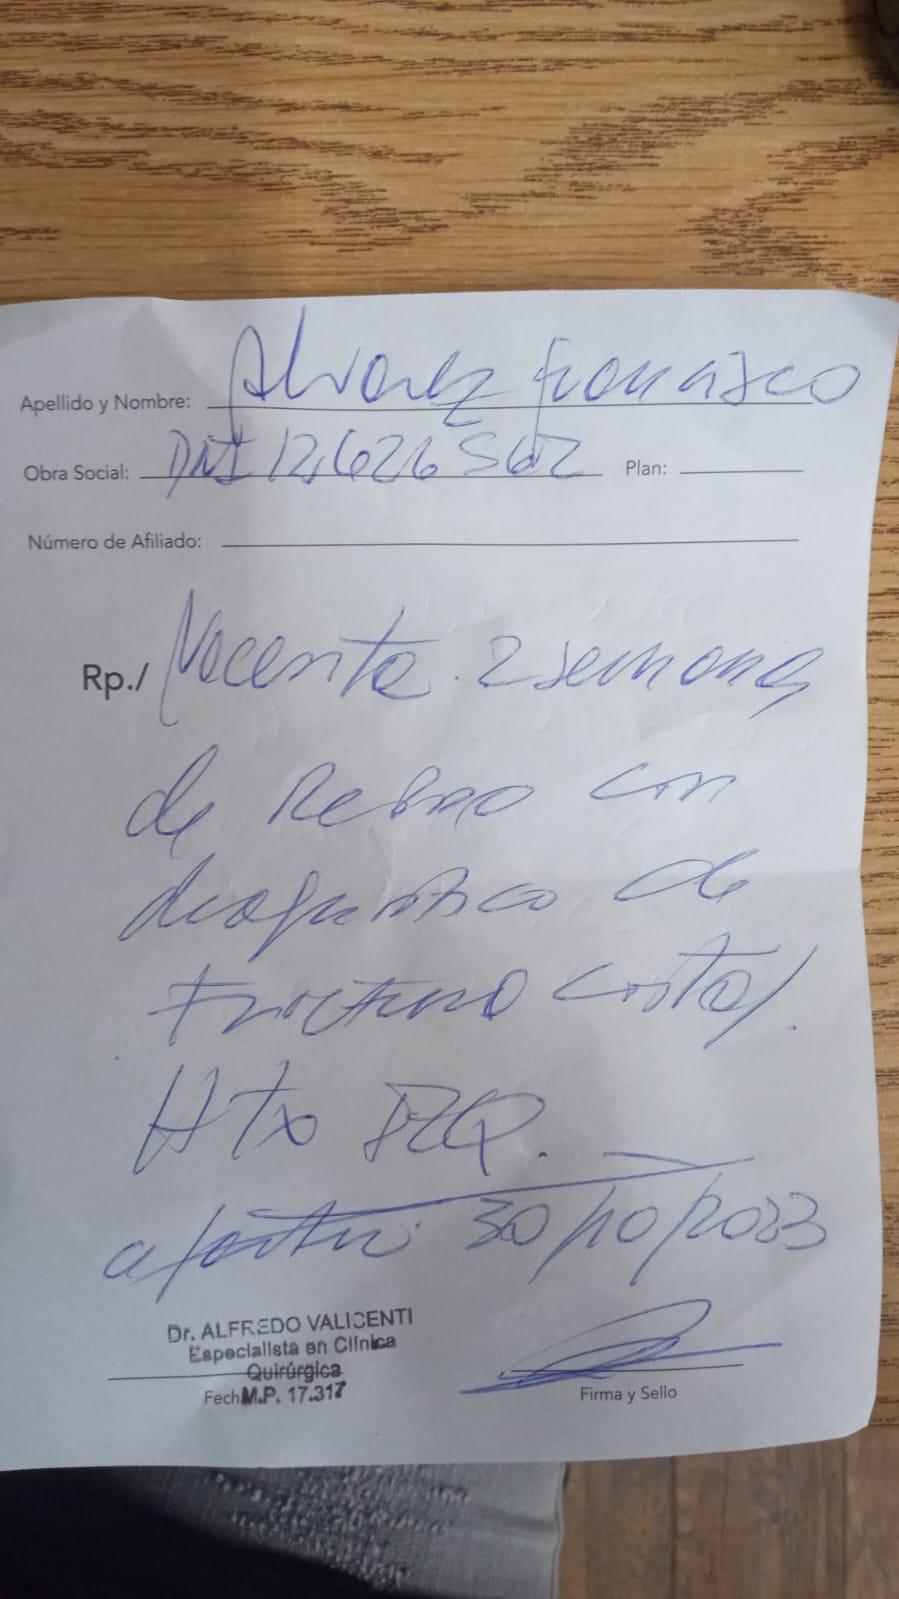 Apellido y Nombre: Alvarez Francisco
Obra Social: DNI 12.626562 Plan:
Número de Afiliado:
Rp./ Necesita 2 semanas
de Reposo con
diagnostico de
Fractura costal.
Htx IZQ.
a partir 30/10/2023
Dr. ALFREDO VALICENTI
Especialista en Clínica
Quirúrgica
Fech M.P. 17.317
Firma y Sello